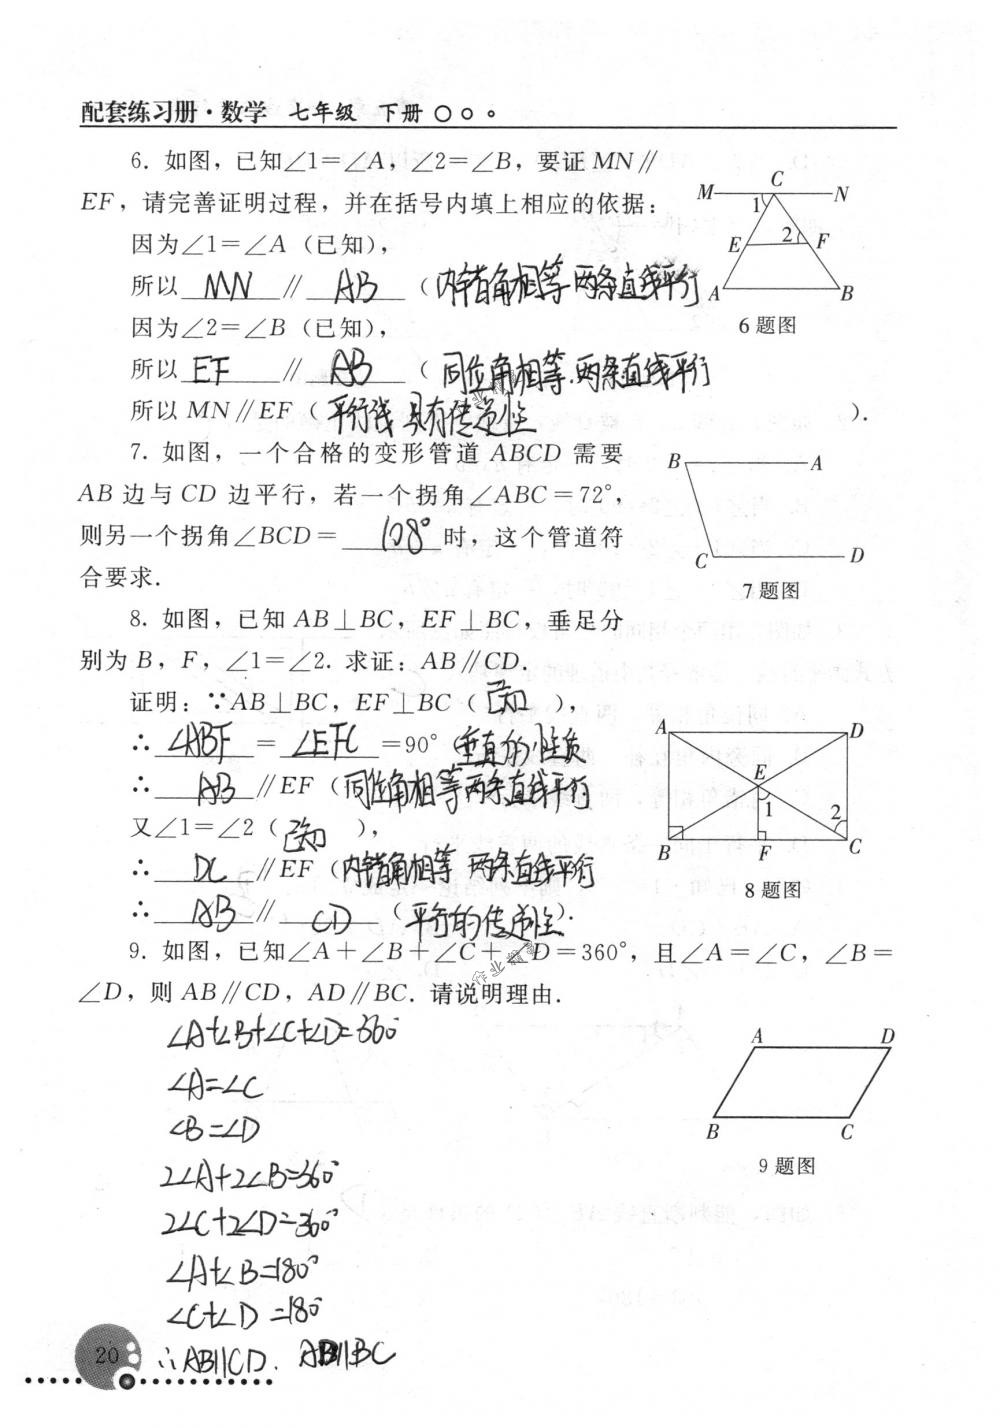 配套练习册·数学 七年级 下册
6. 如图，已知∠1＝∠A，∠2＝∠B，要证 MN∥
EF，请完善证明过程，并在括号内填上相应的依据：
因为∠1＝∠A（已知），
所以 MN ∥ AB （内错角相等 两条直线平行
因为∠2＝∠B（已知），
所以 EF ∥ AB （同位角相等.两条直线平行
所以 MN∥EF（平行线具有传递性 ）.
M C N
1
E 2 F
A B
6题图
7. 如图，一个合格的变形管道 ABCD 需要
AB 边与 CD 边平行，若一个拐角∠ABC＝72°，
则另一个拐角∠BCD＝ 108° 时，这个管道符
合要求.
B A
C D
7题图
8. 如图，已知 AB⊥BC，EF⊥BC，垂足分
别为 B，F，∠1＝∠2. 求证：AB∥CD.
证明：∵AB⊥BC，EF⊥BC（已知），
∴ ∠ABF ＝ ∠EFC ＝90°（垂直的性质
∴ AB ∥EF（同位角相等两条直线平行
又∠1＝∠2（已知），
∴ DC ∥EF（内错角相等 两条直线平行
∴ AB ∥ CD （平行的传递性）.
A D
E
1 2
B F C
8题图
9. 如图，已知∠A＋∠B＋∠C＋∠D＝360°，且∠A＝∠C，∠B＝
∠D，则 AB∥CD，AD∥BC. 请说明理由.
∠A+∠B+∠C+∠D=360°
∠A=∠C
∠B=∠D
2∠A+2∠B=360°
2∠C+2∠D=360°
∠A+∠B=180°
∠C+∠D=180°
∴AB∥CD.
A D
B C
9题图
20